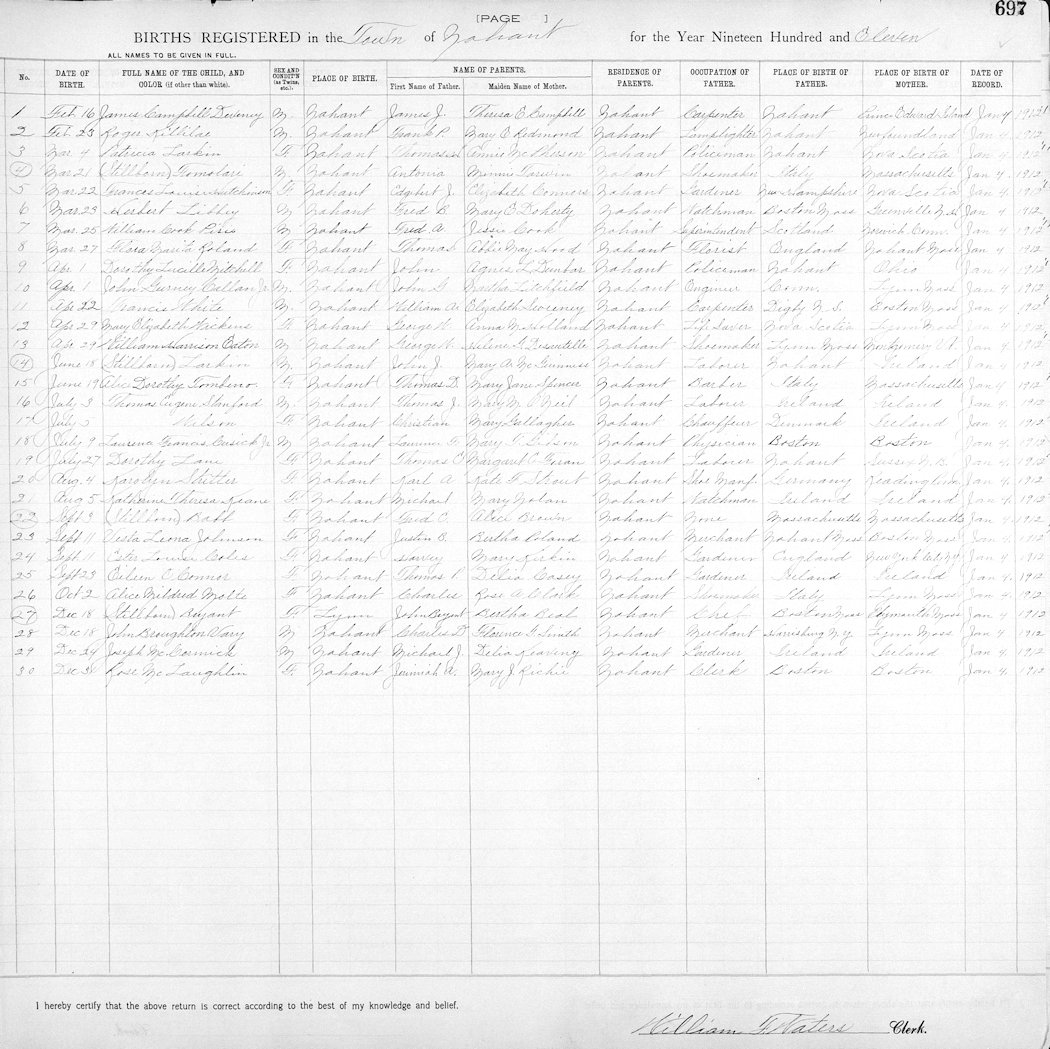 [PAGE ] 697
BIRTHS REGISTERED in the Town of Nahant for the Year Nineteen Hundred and Eleven
ALL NAMES TO BE GIVEN IN FULL.
No. DATE OF BIRTH. FULL NAME OF THE CHILD, AND COLOR (if other than white). SEX AND CONDIT'N (as Twins, etc.) PLACE OF BIRTH. NAME OF PARENTS. First Name of Father. Maiden Name of Mother. RESIDENCE OF PARENTS. OCCUPATION OF FATHER. PLACE OF BIRTH OF FATHER. PLACE OF BIRTH OF MOTHER. DATE OF RECORD.
1 Feb. 16 James Campbell Deveney M. Nahant James J. Theresa E. Campbell Nahant Carpenter Nahant Prince Edward Island Jan 4 1912
2 Feb. 23 Roger Killilae M. Nahant Frank P. Mary E Redmond Nahant Lamplighter Nahant Newfoundland Jan 4 1912
3 Mar. 4 Patricia Larkin F. Nahant Thomas Annie McPherson Nahant Policeman Nahant Nova Scotia Jan 4. 1912
4 Mar 21 (Stillborn) M. Nahant Antonia Minnie Nahant Shoemaker Italy Massachusetts Jan 4. 1912
5 Mar. 22 Frances Louise Hutchinson F. Nahant Egbert J. Elizabeth Connors Nahant Gardener New Hampshire Nova Scotia Jan 4. 1912
6 Mar. 23 Herbert Libbey M. Nahant Fred B. Mary E. Doherty Nahant Watchman Boston Mass Greenville N.H. Jan 4 1912
7 Mar. 25 William Cook M. Nahant Fred A Jessie Cook Nahant Superintendent Scotland Norwich Conn. Jan 4 1912
8 Mar. 27 Flora Roland F. Nahant Thomas Abbie May Hood Nahant Florist England Nahant Mass Jan 4. 1912
9 Apr. 1 Dorothy Lucille Mitchell F. Nahant John Agnes L. Dunbar Nahant Policeman Nahant Ohio Jan 4. 1912
10 Apr. 1 John Gurney Callan Jr. M. Nahant John G. Martha Litchfield Nahant Engineer Conn. Lynn Mass Jan 4. 1912
11 Apr 22 Francis White M. Nahant William A. Elizabeth Nahant Carpenter Digby N.S. Boston Mass Jan 4. 1912
12 Apr 29 Mary Elizabeth Wilkins F. Nahant George W. Anna M. Holland Nahant Life Saver Nova Scotia Lynn Mass Jan 4. 1912
13 Apr 29 William Harrison Eaton M. Nahant George N. Helene G. Nahant Shoemaker Lynn Mass Jan 4 1912
14 June 18 (Stillborn) Larkin M. Nahant John J. Mary A. McGuinness Nahant Laborer Nahant Ireland Jan 4. 1912
15 June 19 Alice Dorothy Tombeno. F. Nahant Thomas D. Mary Jane Spencer Nahant Barber Italy Massachusetts Jan 4 1912
16 July 3 Thomas Eugene Shuford M. Nahant Thomas J. Mary McNeil Nahant Laborer Ireland Ireland Jan 4. 1912
17 July 3 Nelson F. Nahant Christian Mary Gallagher Nahant Chauffeur Denmark Ireland Jan 4. 1912
18 July 9 Laurence Francis Cusick Jr. M. Nahant Laurence F. Mary T. Gibson Nahant Physician Boston Boston Jan 4. 1912
19 July 27 Dorothy Lane F. Nahant Thomas C. Margaret C. Nahant Laborer Nahant Sussex N.B. Jan 4. 1912
20 Aug. 4 Karolyn Stritter F. Nahant Karl A Kate F. Strout Nahant Shoe Manf. Germany Jan 4. 1912
21 Aug 5 Katherine Theresa Keane F. Nahant Michael Mary Nolan Nahant Watchman Ireland Ireland Jan 4. 1912
22 Sept 3 (Stillborn) Babb F. Nahant Fred C. Alice Brown Nahant None Massachusetts Massachusetts Jan 4. 1912
23 Sept. 11 Vesta Leona Johnson F. Nahant Justin E. Bertha Roland Nahant Merchant Nahant Mass Boston Mass Jan 4. 1912
24 Sept. 11 Ester Louise Coles F. Nahant Harvey Mary Nahant Gardener England New York City N.Y. Jan 4. 1912
25 Sept 23 Eileen C Connor F. Nahant Thomas P. Delia Casey Nahant Gardener Ireland Ireland Jan 4. 1912
26 Oct 2 Alice Mildred F. Nahant Charles Rose A Clark Nahant Shoemaker Italy Lynn Mass Jan 4. 1912
27 Dec 18 (Stillborn) Bryant F. Lynn John Bryant Bertha Beal Nahant Chef Boston Mass Plymouth Mass Jan 4. 1912
28 Dec 18 John Broughton Vary M Nahant Charles D. Florence G. Smith Nahant Merchant N.Y. Lynn Mass Jan 4. 1912
29 Dec 24 Joseph McCormick M Nahant Michael J. Delia Keaveny Nahant Gardener Ireland Ireland Jan 4. 1912
30 Dec 31 Rose McLaughlin F. Nahant Jeremiah A. Mary J. Richie Nahant Clerk Boston Boston Jan 4. 1912
I hereby certify that the above return is correct according to the best of my knowledge and belief.
William F. Waters Clerk.